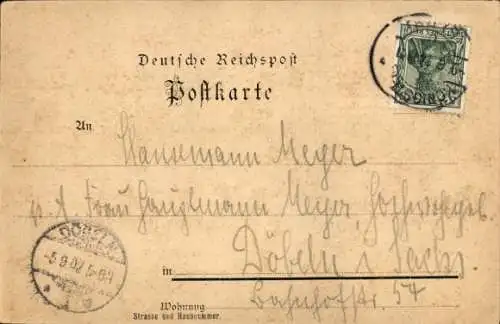 Deutsche Reichspost
Postkarte
An
Hansemann Meyer
p. A Frau Hauptmann Meyer,
Döbeln i Sachs.
in
Bahnhofstr. 54
Wohnung
Strasse und Hausnummer.
DÖBELN